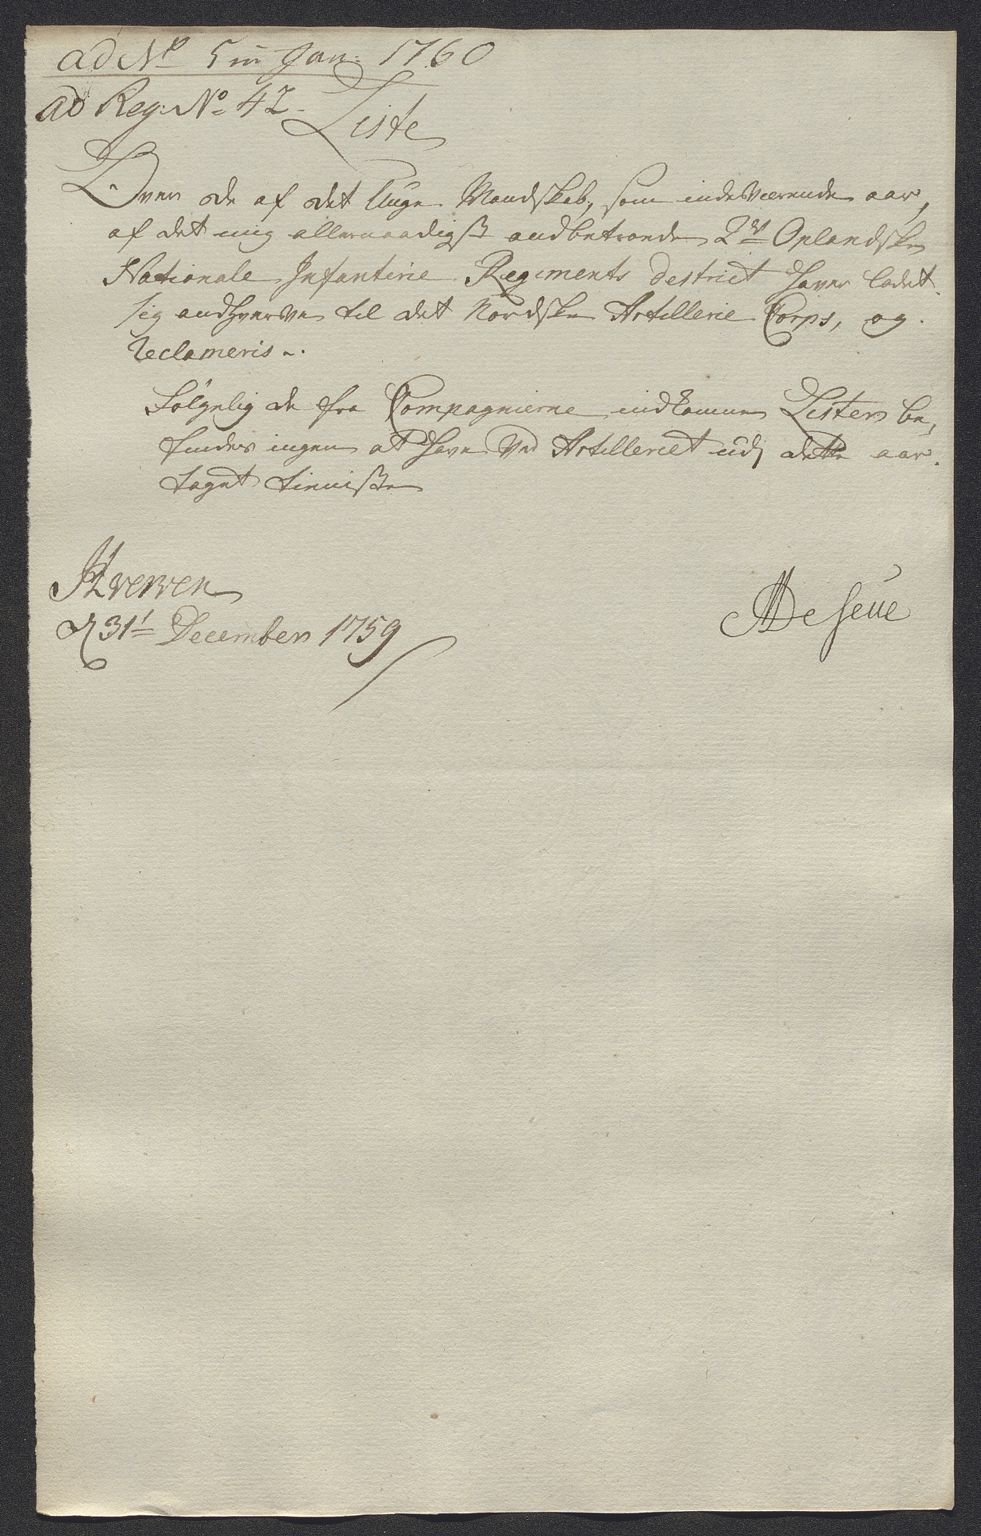 ad No 5 in Jan: 1760
ad Reg: No 42.
Liste
Over de af det Unge Mandskab, som indeværende aar,
af det mig allernaadigst andbetroede 2det Oplandske
Nationale Infanterie Regiments District haver ladet
sig andhverve til det Nordske Artillerie Corps, og
reclameris.
Følgelig de fra Compagnierne indkomne Lister be,
findes ingen at have ved Artilleriet udj dette aar
taget tienniste
Hverven
d 31t December 1759
De Seue